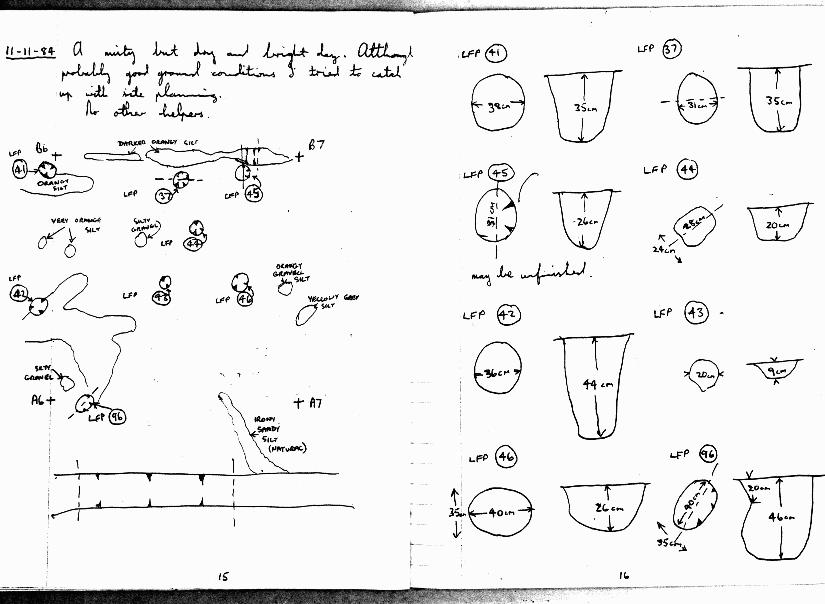 11-11-84 A misty but dry and bright day. Although
probably good ground conditions I tried to catch
up with site planning.
No other helpers.
DARKER ORANGY SILT
B6 +
+ B7
LFP
41
ORANGY
SILT
LFP 37
LFP 45
VERY ORANGE
SILT
SILTY
GRAVEL
LFP 44
LFP
42
LFP 43
LFP 46
ORANGY
GRAVELL
SILT
YELLOWY GREY
SILT
SILTY
GRAVEL
A6 +
LFP 96
+ A7
IRONY
SANDY
SILT
(NATURAL)
15
LFP 41
38cm
35cm
LFP 37
31cm
35cm
LFP 45
26cm
may be unfinished.
LFP 44
25cm
24cm
20cm
LFP 42
36cm
44 cm
LFP 43
20cm
9cm
LFP 46
35cm
40cm
26cm
LFP 96
40cm
35cm
20cm
46cm
16